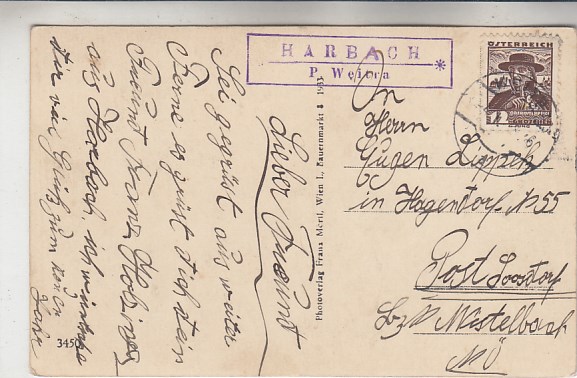 HARBACH
P. Weitra
*
ÖSTERREICH
Lieber Freund
Sei gegrüst aus weiter
Ferne es grüst dich dein
Freund Franz
aus Harbach, ich wünsche
dir viel Glück zum neuen
Jahr
3450
Photoverlag Franz Mörtl, Wien I., Bauernmarkt 3
An
Herrn
Eugen
in Hagendorf N 55
Post Loosdorf
Bzk Mistelbach
NÖ